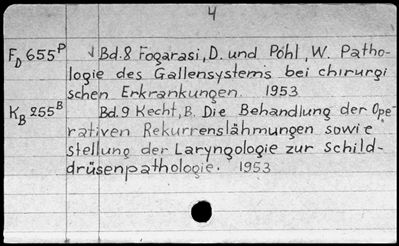 4
F_D 655^P √Bd.8 Fogarasi, D. und Pohl, W. Patho-
logie des Gallensystems bei chirurgi
schen Erkrankungen. 1953
K_B 255^B Bd.9 Kecht, B. Die Behandlung der Ope-
rativen Rekurrenslähmungen sowie
stellung der Laryngologie zur Schild-
drüsenpathologie. 1953